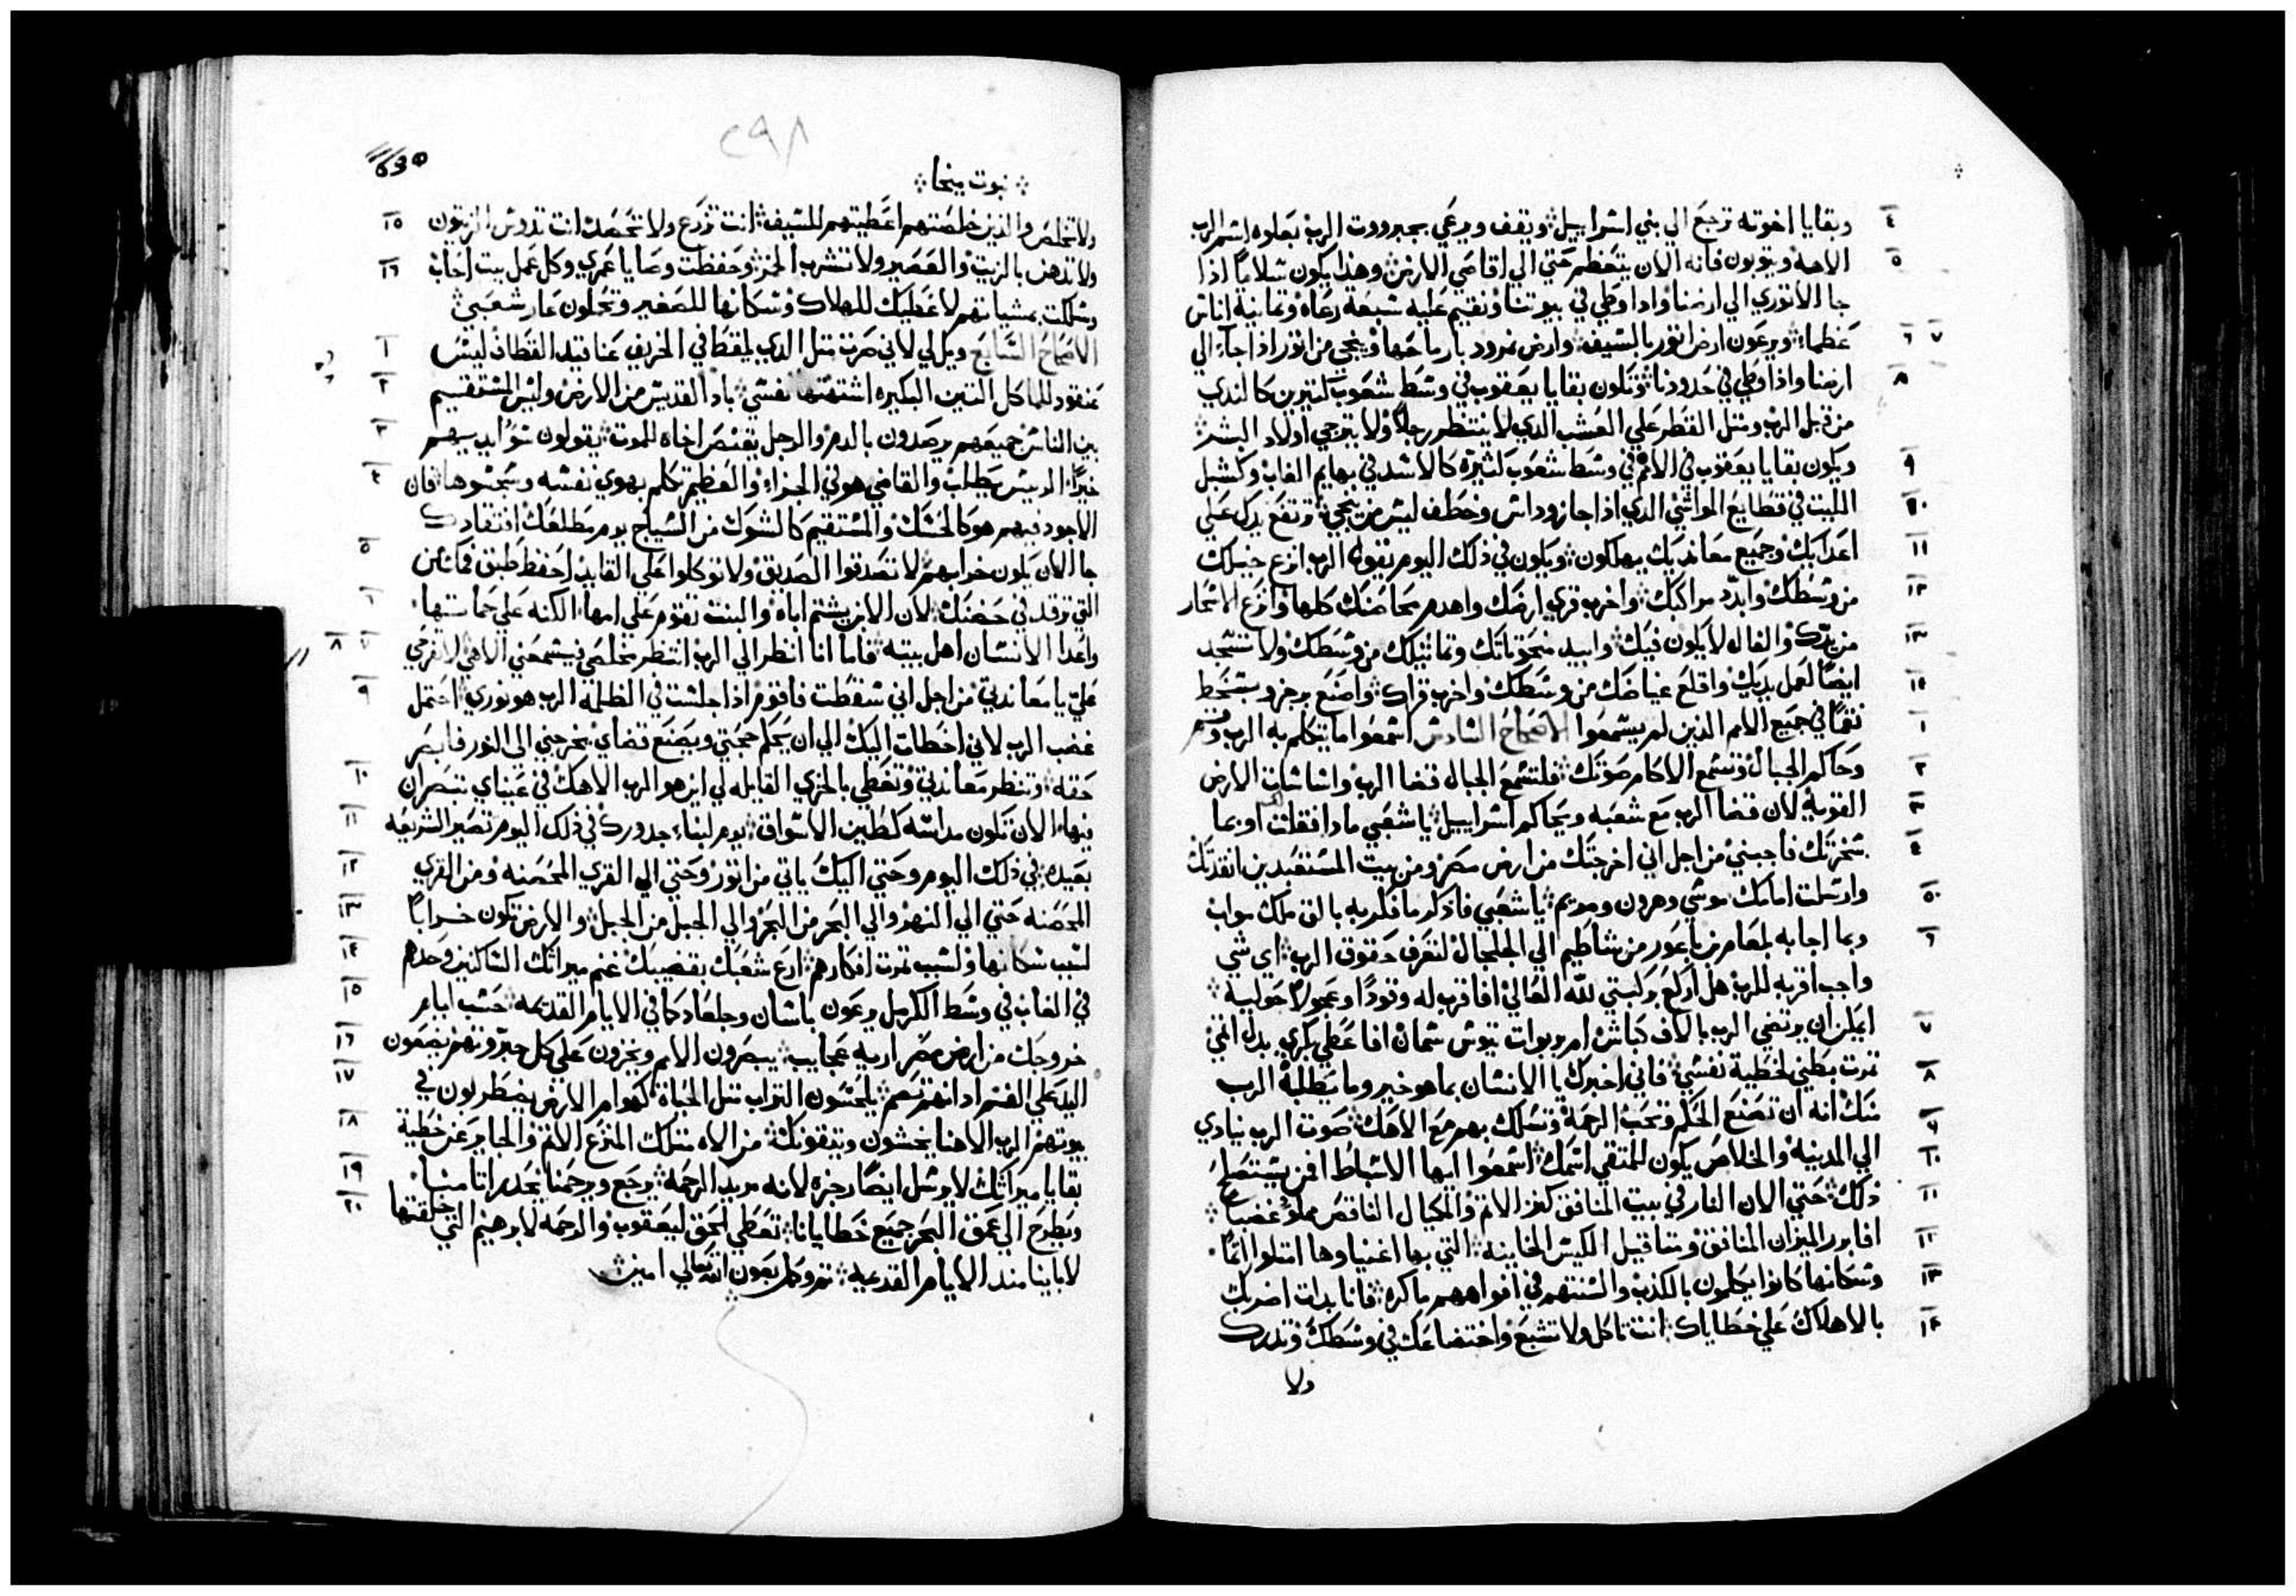 وبقايا اخوته ترجع الي بني اسراييل ويقف ويرعي بجبرووت الرب بعلوه اسم الرب
الاهه ويتوبون فانه الان يتعظم حتي الي اقاصي الارض وهذا يكون سلامًا اذا
جا الاتوري الي ارضنا واذا وطي في بيوتنا ونقيم عليه سبعه رعاه وثمانية اناس
عظماء ويرعون ارض اتور بالسيف وارض نمرود بارماحها وينجي من اتور اذا جاء الي
ارضنا واذا وطي في حدودنا وتكون بقايا يعقوب في وسط شعوب كثيرين كالندي
من قبل الرب ومثل القطر علي العشب الذي لا ينتظر رجلاً ولا يترجي اولاد البشر
ويكون بقايا يعقوب في الامم في وسط شعوب كثيره كالاسد في بهايم الغاب وكشبل
الليث في قطايع المواشي الذي اذا جاز وداس وخطف ليس من ينجي ترتفع يدك علي
اعدايك وجميع معانديك يهلكون ويكون في ذلك اليوم يقول الرب انزع خيلك
من وسطك وابدّد مراكبك واخرب قري ارضك واهدم محاصنك كلها وانزع الاسحار
من يدك والفال لا يكون فيك وابيد منحوتاتك وتماثيلك من وسطك ولا تسجد
ايضًا لعمل يديك واقلع غياضك من وسطك واخرب قراك واصنع برجز وبسخط
نقمًا في جميع الامم الذين لم يسمعوا الاصحاح السادس اسمعوا ما يتكلم به الرب قم
وحاكم الجبال وتسمع الاكام صوتك فلتسمع الجبال قضا الرب واساسات الارض
القوية لان قضا الرب مع شعبه ويحاكم اسراييل يا شعبي ماذا فعلت او بما
سخرتك فاجبني من اجل اني اخرجتك من ارض مصر ومن بيت المستعبدين انقدتك
وارسلت امامك موسي وهرون ومريم يا شعبي فاذكر ما فكر به بالق ملك مواب
وبما اجابه بلعام بن باعور من شاطيم الي الجلجال لتعرف حقوق الرب اي شي
واجب اقربه للرب هل اركع بركبتي لله العالي افاقرب له وقودًا وعجولاً حولية
ايمكن ان يرتضي الرب بالاف كباش ام بربوات تيوس سمان افاعطي بكري بدل اثمي
ثمرت بطني لخطية نفسي فاني اخبرك يا الانسان بما هو خير وما يطلبه الرب
منك انه ان تصنع الحكم وتحب الرحمه وتسلك بهم مع الاهك صوت الرب ينادي
الي المدينه والخلاص يكون للمتقي اسمك اسمعوا ايها الاسباط افمن يستصلح
ذلك حتي الان النار في بيت المنافق كنز الاثم والمكيال الناقص مملوء غضبًا
افابرر الميزان المنافق ومثاقيل الكيس الخاينه التي بها اغنياوها امتلوا اثمًا
وسكانها كانوا يتكلمون بالكذب والسنتهم في افواههم ماكره فانا بدات اضربك
بالاهلاك علي خطاياك انت تاكل ولا تشبع واختضاعك في وسطك وتدرك
ولا
٢٩٨
نبوت ميخا
ولا تخلص والذين خلصتهم اعطيتهم للسيف انت تزرع ولا تحصد انت تدوس الزيتون
ولا تدهن بالزيت والعصير ولا تشرب الخمر وحفظت وصايا عمري وكل عمل بيت احاب
وسلكت بمشياتهم لاعطيك للهلاك وسكانها للصفير وتحملون عار شعبي
الاصحاح السابع ويل لي لاني صرت مثل الذي يلقط في الخريف عناقيد القطاف ليس
عنقود للماكل التين البكيره اشتهتها نفسي باد القديس من الارض وليس المستقيم
بين الناس جميعهم يرصدون بالدم والرجل يقتنص اخاه للموت يقولون سؤ ايديهم
خيرًا الريس يطلب والقاضي هو في الجزاء والعظيم تكلم بهوي نفسه وسجسوها فان
الاجود فيهم هو كالخسك والمستقيم كالشوك من السياج يوم مطلعك افتقادك
جا الان يكون خرابهم لا تصدقوا الصديق ولا توكلوا علي القايد احفظ طبق فمك من
التي ترقد في حضنك لان الابن يشتم اباه والبنت تقوم علي امها الكنه علي حماتها
واعدا الانسان اهل بيته فاما انا انظر الي الرب انتظر مخلصي فيسمعني الاهي لا تفرحي
علي يا معاندتي من اجل اني سقطت فاقوم اذا جلست في الظلمة الرب هو نوري احتمل
غضب الرب لاني اخطات اليك الي ان يحكم حجتي ويصنع قضاي يخرجني الي النور فابصر
حقه وتنظر معاندتي وتغطي بالخزي القايله لي اين هو الرب الاهك في عيناي تبصران
فيها الان تكون مداسه كطين الاسواق يوم لبناء جدورك في ذلك اليوم تصير الشريعه
بعيده في ذلك اليوم وحتي اليك ياتي من اتور وحتي الي القري المحصنه ومن القري
المحصنه حتي الي النهر والي البحر من البحر والي الجبل من الجبل والارض تكون خرابًا
لسبب سكانها ولسبب ثمرت افكارهم ارع شعبك بقضيبك غنم ميراثك الساكنين وحدهم
في الغاب في وسط الكرمل يرعون باسان وجلعاد كما في الايام القديمه حسب ايام
خروجك من ارض مصر اريه عجايب يبصرون الامم ويخزون علي كل جبروتهم يضعون
اليد علي الفم اذانهم تصم يلحسون التراب مثل الحياة كهوام الارض يضطربون في
بيوتهم الرب الاهنا يخشون ويتقونك من الاه مثلك المنزع الاثم والجابر عن خطية
بقايا ميراثك لا يرسل ايضًا رجزه لانه مريد الرحمة يرجع ويرحمنا يحدر اثامنا
ويطرح الي عمق البحر جميع خطايانا تعطي الحق ليعقوب والرحمه لابرهيم التي حلفتها
لابايينا منذ الايام القديمه تم وكل بعون الله تعالي امين